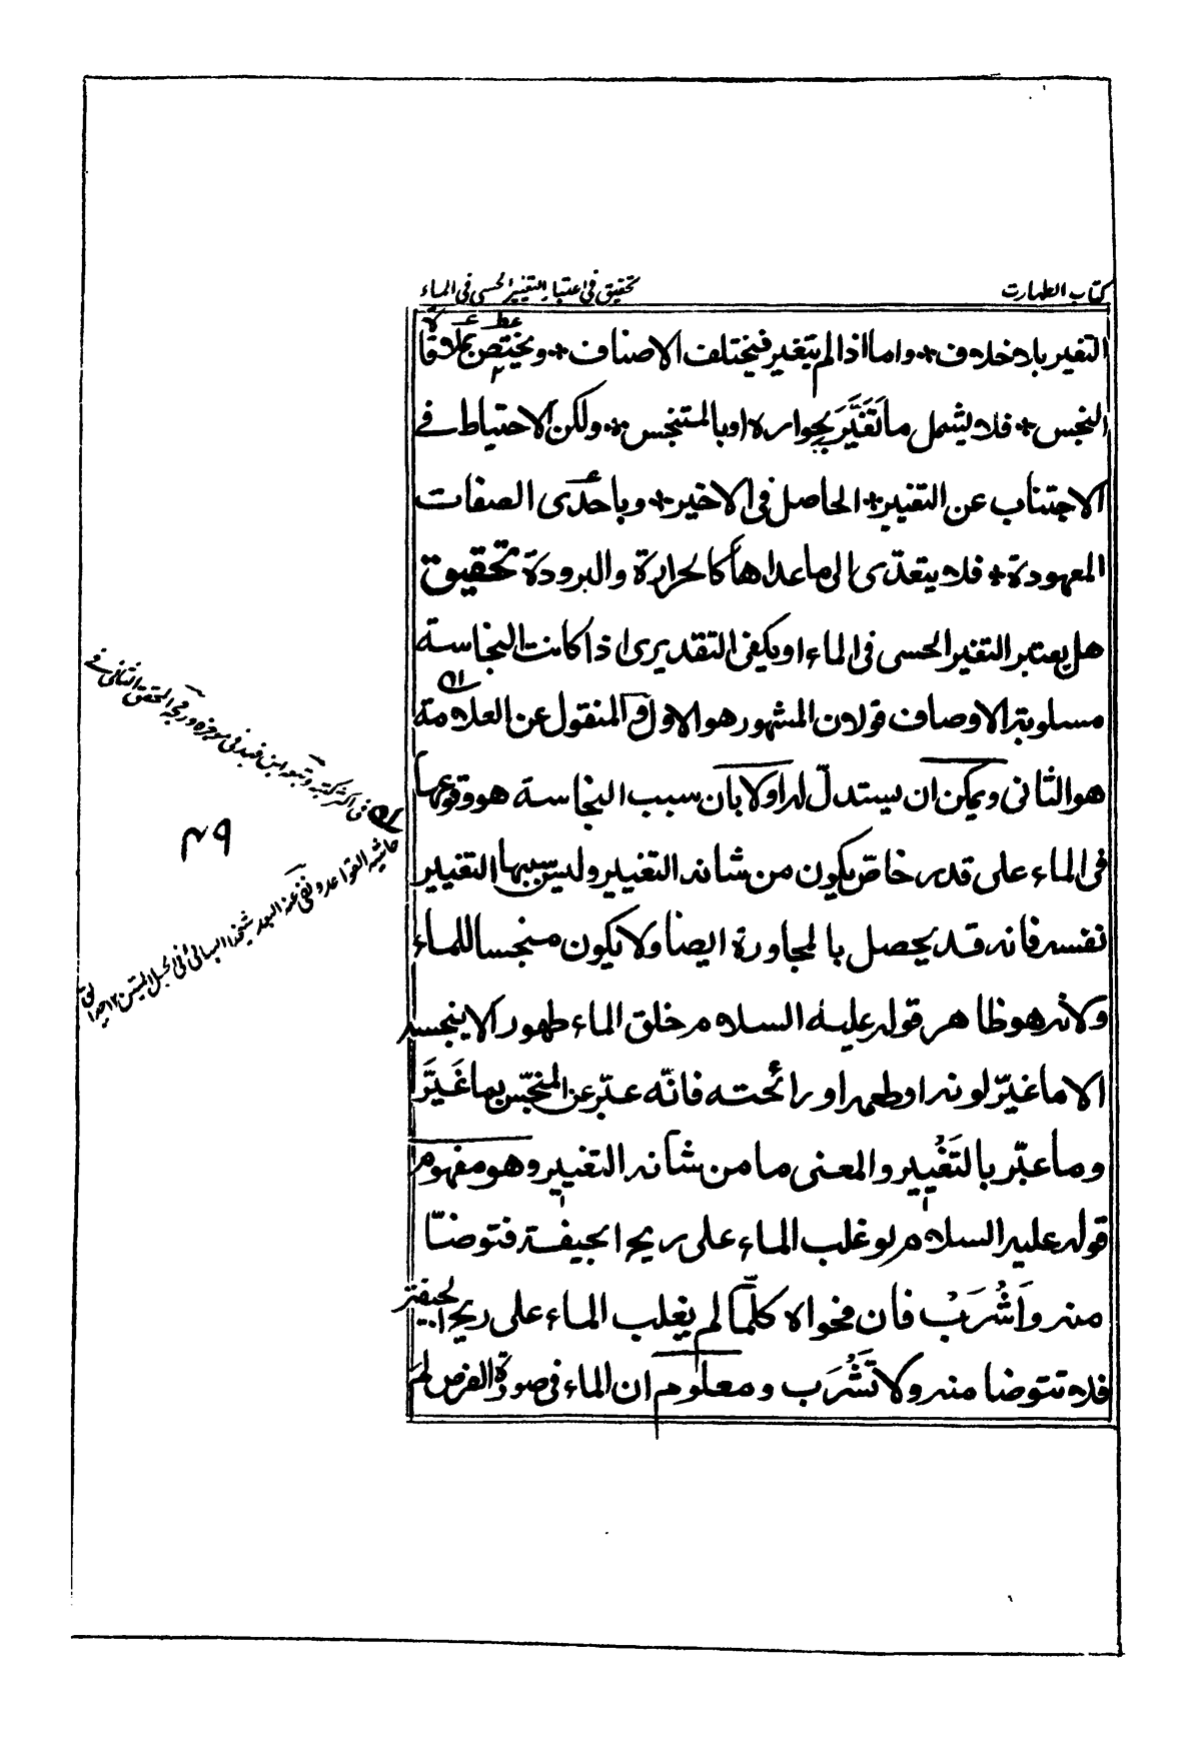 كتاب الطهارت
تحقيق في اعتبار التغير الحسي في الماء
التغير بلا خلاف + واما اذا لم يتغير فيختلف الاصناف + ويختص بملاقاة
النجس + فلا يشمل ما تَغَيَّرَ بجواره او بالمتنجس + ولكن الاحتياط في
الاجتناب عن التغير + الحاصل في الاخير + وباحدى الصفات
المعهودة + فلا يتعدّى الى ما عداها كالحرارة والبرودة تحقيق
هل يعتبر التغير الحسى فى الماء او يكفى التقديرى اذا كانت النجاسة
مسلوبة الاوصاف قولان المشهور هو الاول والمنقول عن العلامة
هو الثانى ويمكن ان يستدلّ له اولا بان سبب النجاسة هو وقوعها
فى الماء على قدر خاصّ يكون من شانه التغيير وليس سببها التغيير
نفسه فانه قد يحصل بالمجاورة ايضا ولا يكون منجسا للماء
ولانه هو ظاهر قوله عليه السلام خلق الماء طهورا لا ينجسه
الا ما غيّر لونه او طعمه او رائحته فانّه عبّر عن المنجّس بما غَيَّرَ
وما عبّر بالتَغْيير والمعنى ما من شأنه التغيير وهو مفهوم
قوله عليه السلام لو غلب الماء على ريح الجيفة فتوضّأ
منه واَشْرَبْ فان فحواه كلّما لم يغلب الماء على ريح الجيفة
فلا تتوضا منه ولا تَشْرَب ومعلوم ان الماء فى صورة الفرض لم
في اكثر كتبه وتبعه ابن فهد في موجزه ورجحه المحقق الثاني في
حاشيه القواعد ونفى عنه البعد شيخنا البهائي في الحبل المتين ١٢ حدائق
٤٩